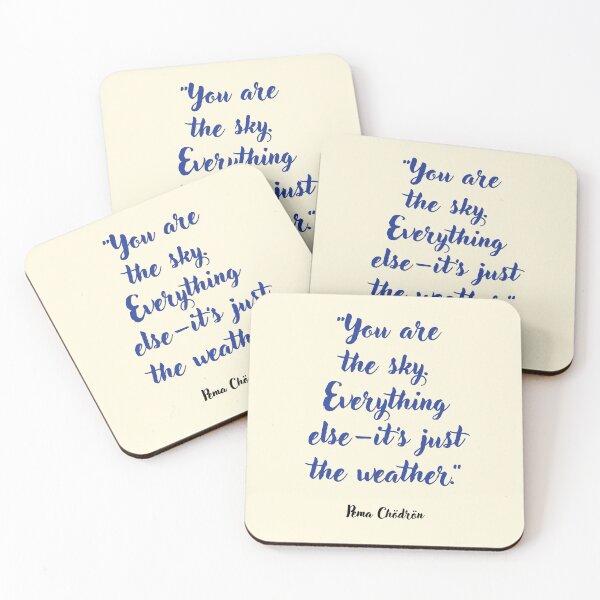 "You are
the sky.
Everything
just
"You are
the sky.
Everything
else—it's just
the weather."
"You are
the sky.
Everything
else—it's just
the
Pema
"You are
the sky.
Everything
else—it's just
the weather."
Pema Chödrön